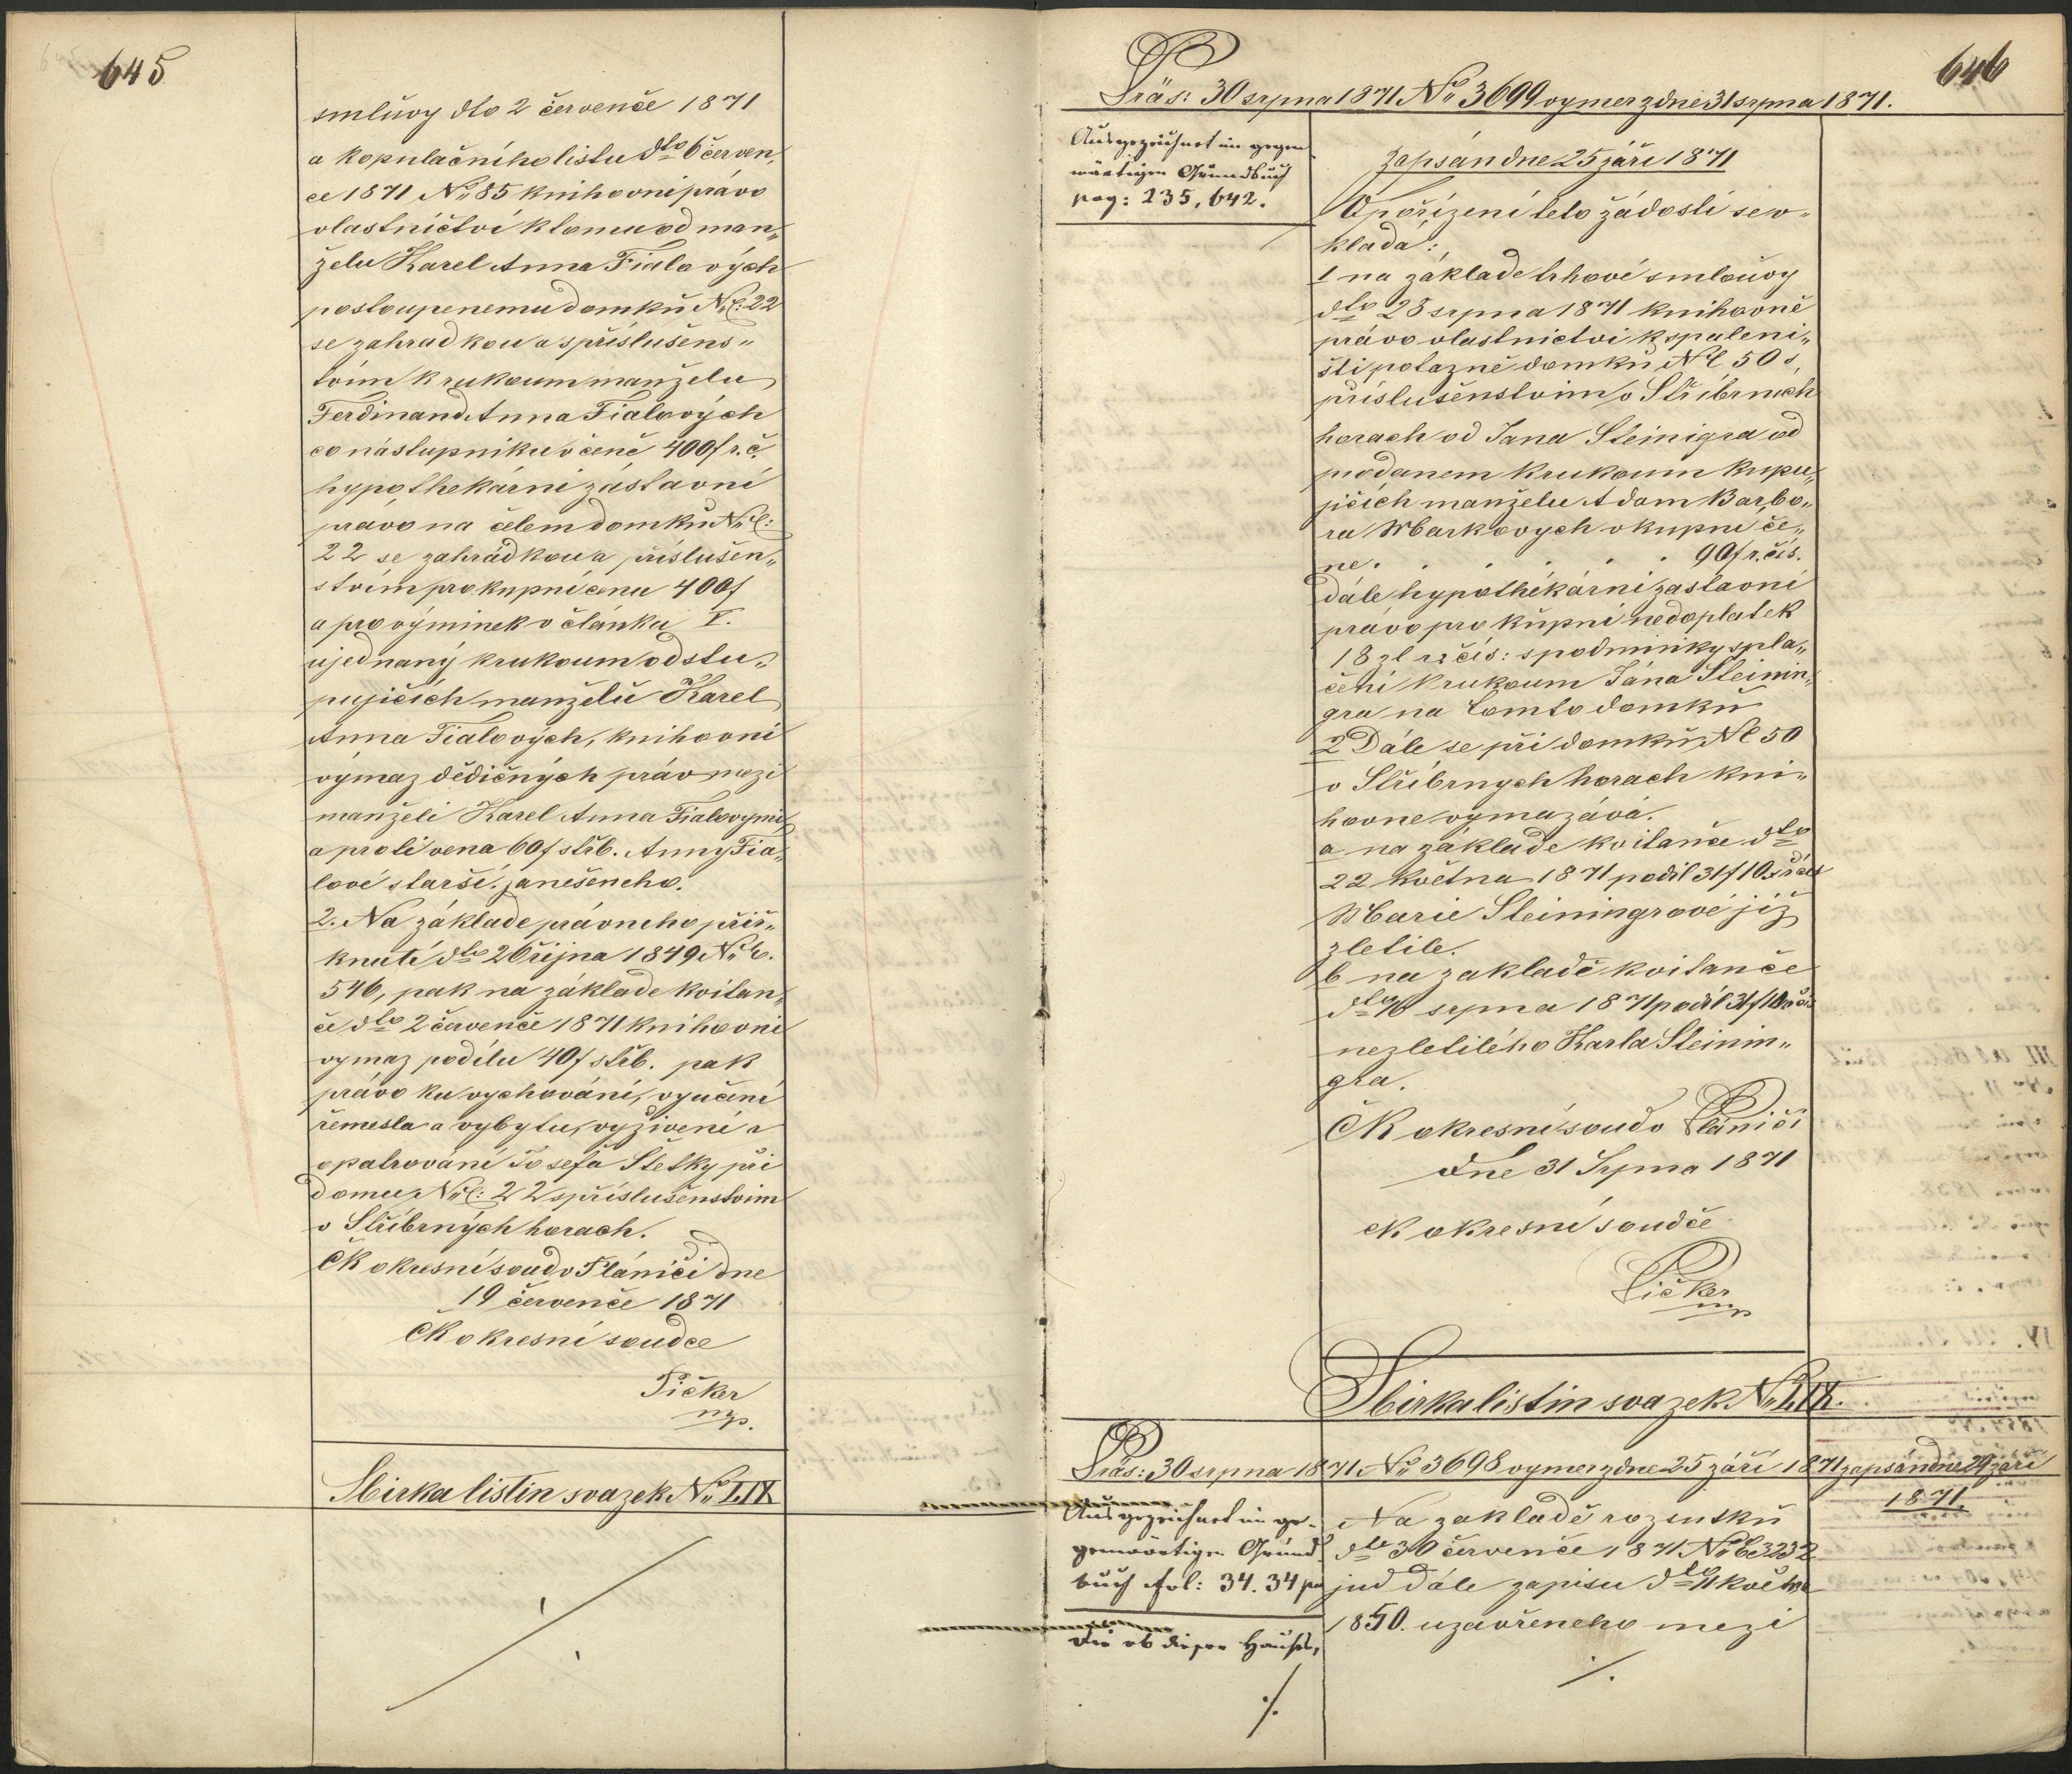 645
smlůvy dto 2 července 1871
a kopulačního listu dto 6 červen„
ce 1871 No 85 knihovni právo
vlastnictví k tomu od man„
želu Karel Anna Fialových
postoupenemu domků NC: 22
se zahradkou a s příslušens„
tvím k rukoum manželu
Ferdinand Anna Fialových
co nástupniku v čeně 400f r. č.
hypothekární zástavní
právo na čelem domků NC:
22 se zahrádkou a příslušen„
stvím pro kupní cenu 400f
a pro výminek v článku V.
ujednaný k rukoum odstu„
pujičích manželů Karel
Anna Fialových, knihovni
výmaz dědičných práv mezi
manželi Karel Anna Fialovymi
a proti vena 60f střb. Anny Fia„
lové starší. zanešeneho.
2. Na základe právneho přiř„
knutí dto 26 října 1849 No C.
546, pak na základe kvitan„
če dto 2 července 1871 knihovni
vymaz podílu 40f střb. pak
právo ku vychování, vyučení
řemesla a vybytu, vyživení a
opatrování Josefa Stetky při
domu NC: 22 s příslušenstvim
v Stříbrných horach.
ČK okresní soud v Plánici dne
19 července 1871
ČK okresní soudce
Pičker
mp.
Sbirka listin svazek No LIX
646
Präs: 30 srpna 1871 No 3699 vymer z dne 31 srpna 1871.
Ausgezeichnet im gegen
wärtigen Grundbuch
pag: 235, 642.
Zapsán dne 25 září 1871
V pořízení teto žádosti se v„
kladá:
1 na základe trhové smlouvy
dto 28 srpna 1871 knihovně
právo vlastnictvi k spaleni„
šti potazně domků NC 50 s
příslušenstvim v Střibrnich
horach od Jana Steinigra od
prodanem k rukoum kupu„
jičích manželu Adam Barbo„
ra Markových v kupni če„
ne . . . . . 90f r. čís.
dále hypothékárni zastavní
právo pro kůpní nedoplatek
18 zl r: čís: s podminky spla„
čení k rukoum Jána Steinin„
gra na tomto domků
2 Dále se při domků NC 50
v Stříbrnych horach kni„
hovne vymazává.
a na základe kvitanče dto
22 Května 1871 podil 31f 10
Marie Steiningrové již
zletile.
b na zakladě kvitanče
dto 16 srpna 1871 podíl 31f 10
nezletilého Karla Steinin„
gra.
ČK okresní soud v Plániči
dne 31 Srpna 1871
ČK okresní soudče
Pičker
mp
Sbirka listin svazek No LIX.
Präs: 30 srpna 1871 No 3698 vymer z dne 25 září 1871 zapsán dne 29 září
1871.
Ausgezeichnet im ge-
genwärtigen Grund
buch fol: 34. 34 pa
Die ob dieser Hauses,
./.
Na zakladě rozsutků
dto 30 července 1871 No C 3232
jud dále zapisu dto 11 května
1850. uzavřeneho mezi
./.